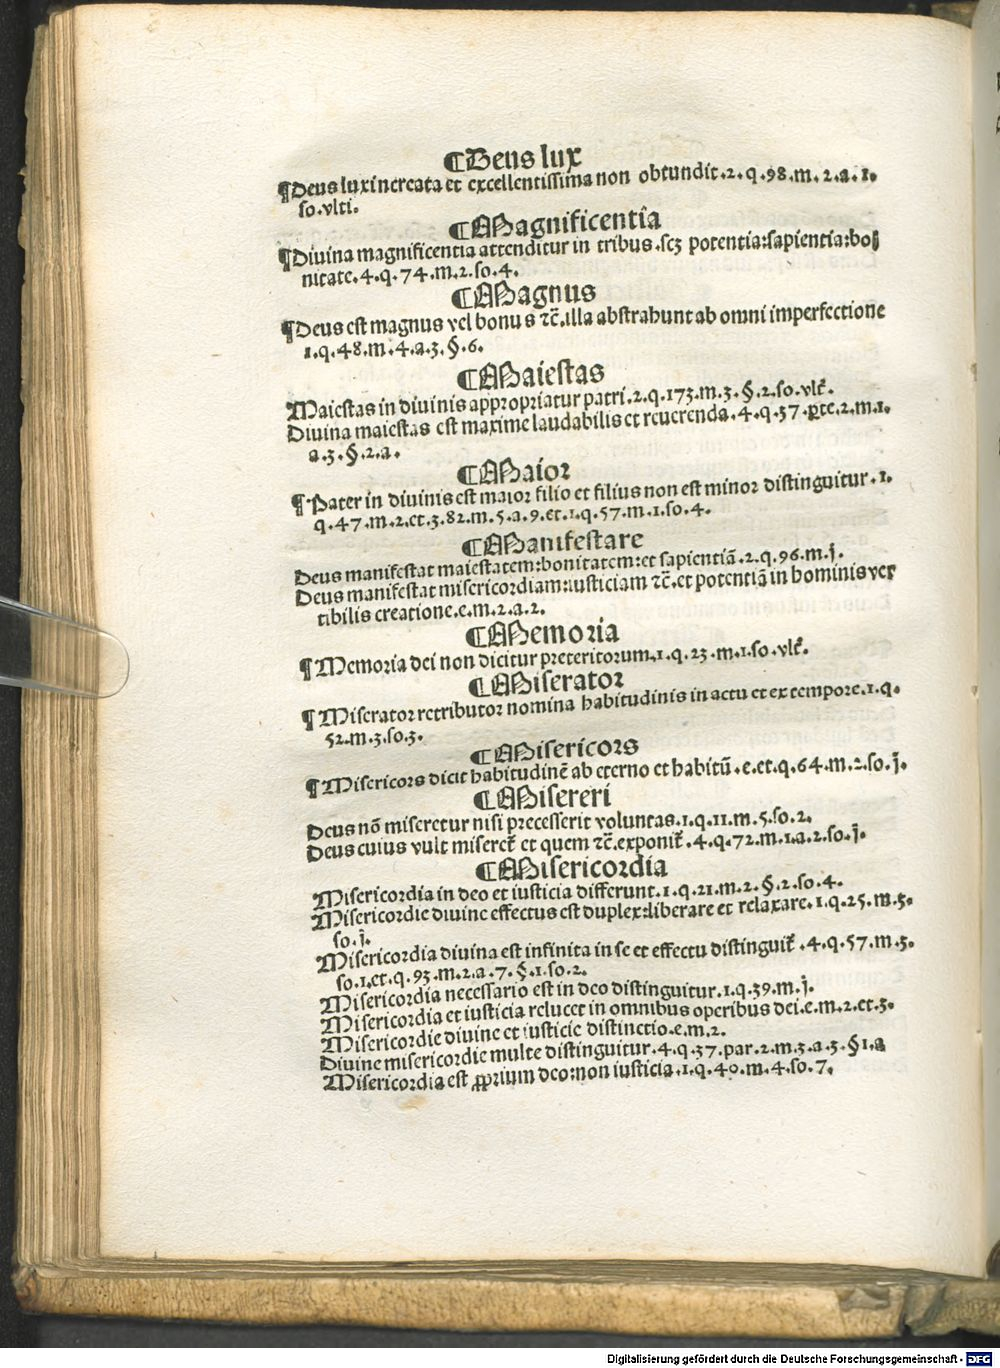 ¶Deus lux
¶Deus lux increata et excellentissima non obtundit.2.q.98.m.2.a.1.
so.vlti.
¶Magnificentia
¶Diuina magnificentia attenditur in tribus.scꝫ potentia:sapientia:bo
nitate.4.q.74.m.2.so.4.
¶Magnus
¶Deus est magnus vel bonus ⁊c̄.illa abstrahunt ab omni imperfectione
1.q.48.m.4.a.3.§.6.
¶Maiestas
Maiestas in diuinis appropriatur patri.2.q.173.m.3.§.2.so.vlt̄.
Diuina maiestas est maxime laudabilis et reuerenda.4.q.37.ꝑte.2.m.1.
a.3.§.2.a.
¶Maior
¶Pater in diuinis est maior filio et filius non est minor distinguitur.1.
q.47.m.2.et.3.82.m.5.a.9.et.1.q.57.m.1.so.4.
¶Manifestare
Deus manifestat maiestatem:bonitatem:et sapientiā.2.q.96.m.j̄.
Deus manifestat misericordiam:iusticiam ⁊c̄.et potentiā in hominis ver
tibilis creatione.e.m.2.a.2.
¶Memoria
¶Memoria dei non dicitur preteritorum.1.q.23.m.1.so.vlt̄.
¶Miserator
¶Miserator retributor nomina habitudinis in actu et ex tempore.1.q.
52.m.3.so.3.
¶Misericors
¶Misericors dicit habitudinē ab eterno et habitū.e.et.q.64.m.2.so.j̄.
¶Misereri
Deus nō miseretur nisi precesserit voluntas.1.q.11.m.5.so.2.
Deus cuius vult miseret̄ et quem ⁊c̄.exponit̄.4.q.72.m.1.a.2.so.j̄.
¶Misericordia
Misericordia in deo et iusticia differunt.1.q.21.m.2.§.2.so.4.
Misericordie diuine effectus est duplex:liberare et relaxare.1.q.25.m.5.
so.j̄.
Misericordia diuina est infinita in se et effectu distinguit̄.4.q.57.m.3.
so.1.et.q.93.m.2.a.7.§.1.so.2.
Misericordia necessario est in deo distinguitur.1.q.39.m.j̄.
Misericordia et iusticia relucet in omnibus operibus dei.e.m.2.et.3.
Misericordie diuine et iusticie distinctio.e.m.2.
Diuine misericordie multe distinguitur.4.q.37.par.2.m.3.a.3.§1.a
Misericordia est ꝓprium deo:non iusticia.1.q.40.m.4.so.7.
Digitalisierung gefördert durch die Deutsche Forschungsgemeinschaft - DFG